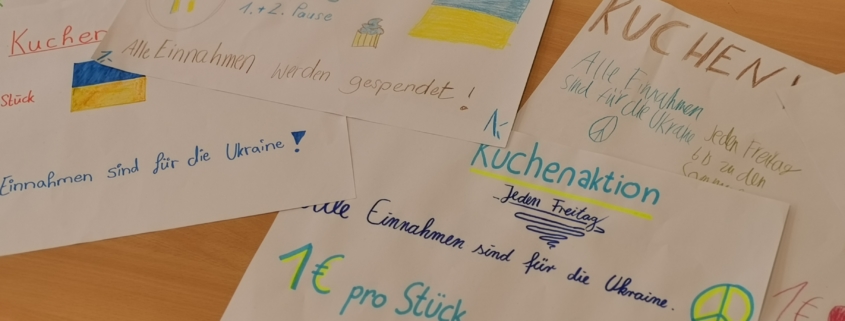 Kuchen
Stück
Einnahmen sind für die Ukraine!
1.+2. Pause
Alle Einnahmen werden gespendet!
KUCHEN!
Alle Einnahmen
sind für die Ukraine
Jeden Freitag
bis zu den
Kuchenaktion
Jeden Freitag
Alle Einnahmen sind für die Ukraine.
1€ pro Stück
1€